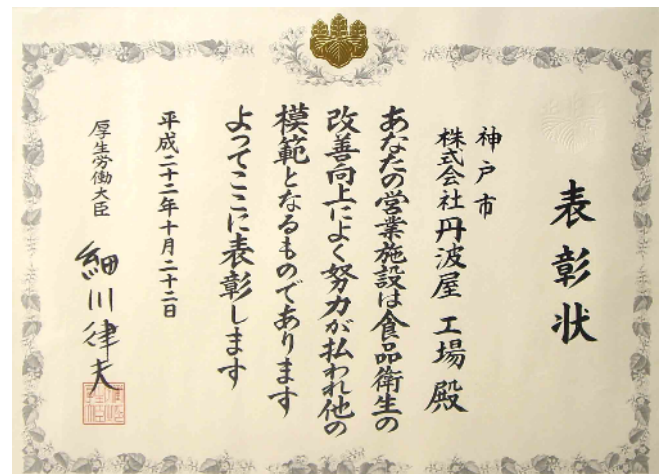 表彰状
神戸市
株式会社丹波屋 工場 殿
あなたの営業施設は食品衛生の
改善向上によく努力が払われ他の
模範となるものであります
よってここに表彰します
平成二十二年十月二十二日
厚生労働大臣 細川律夫